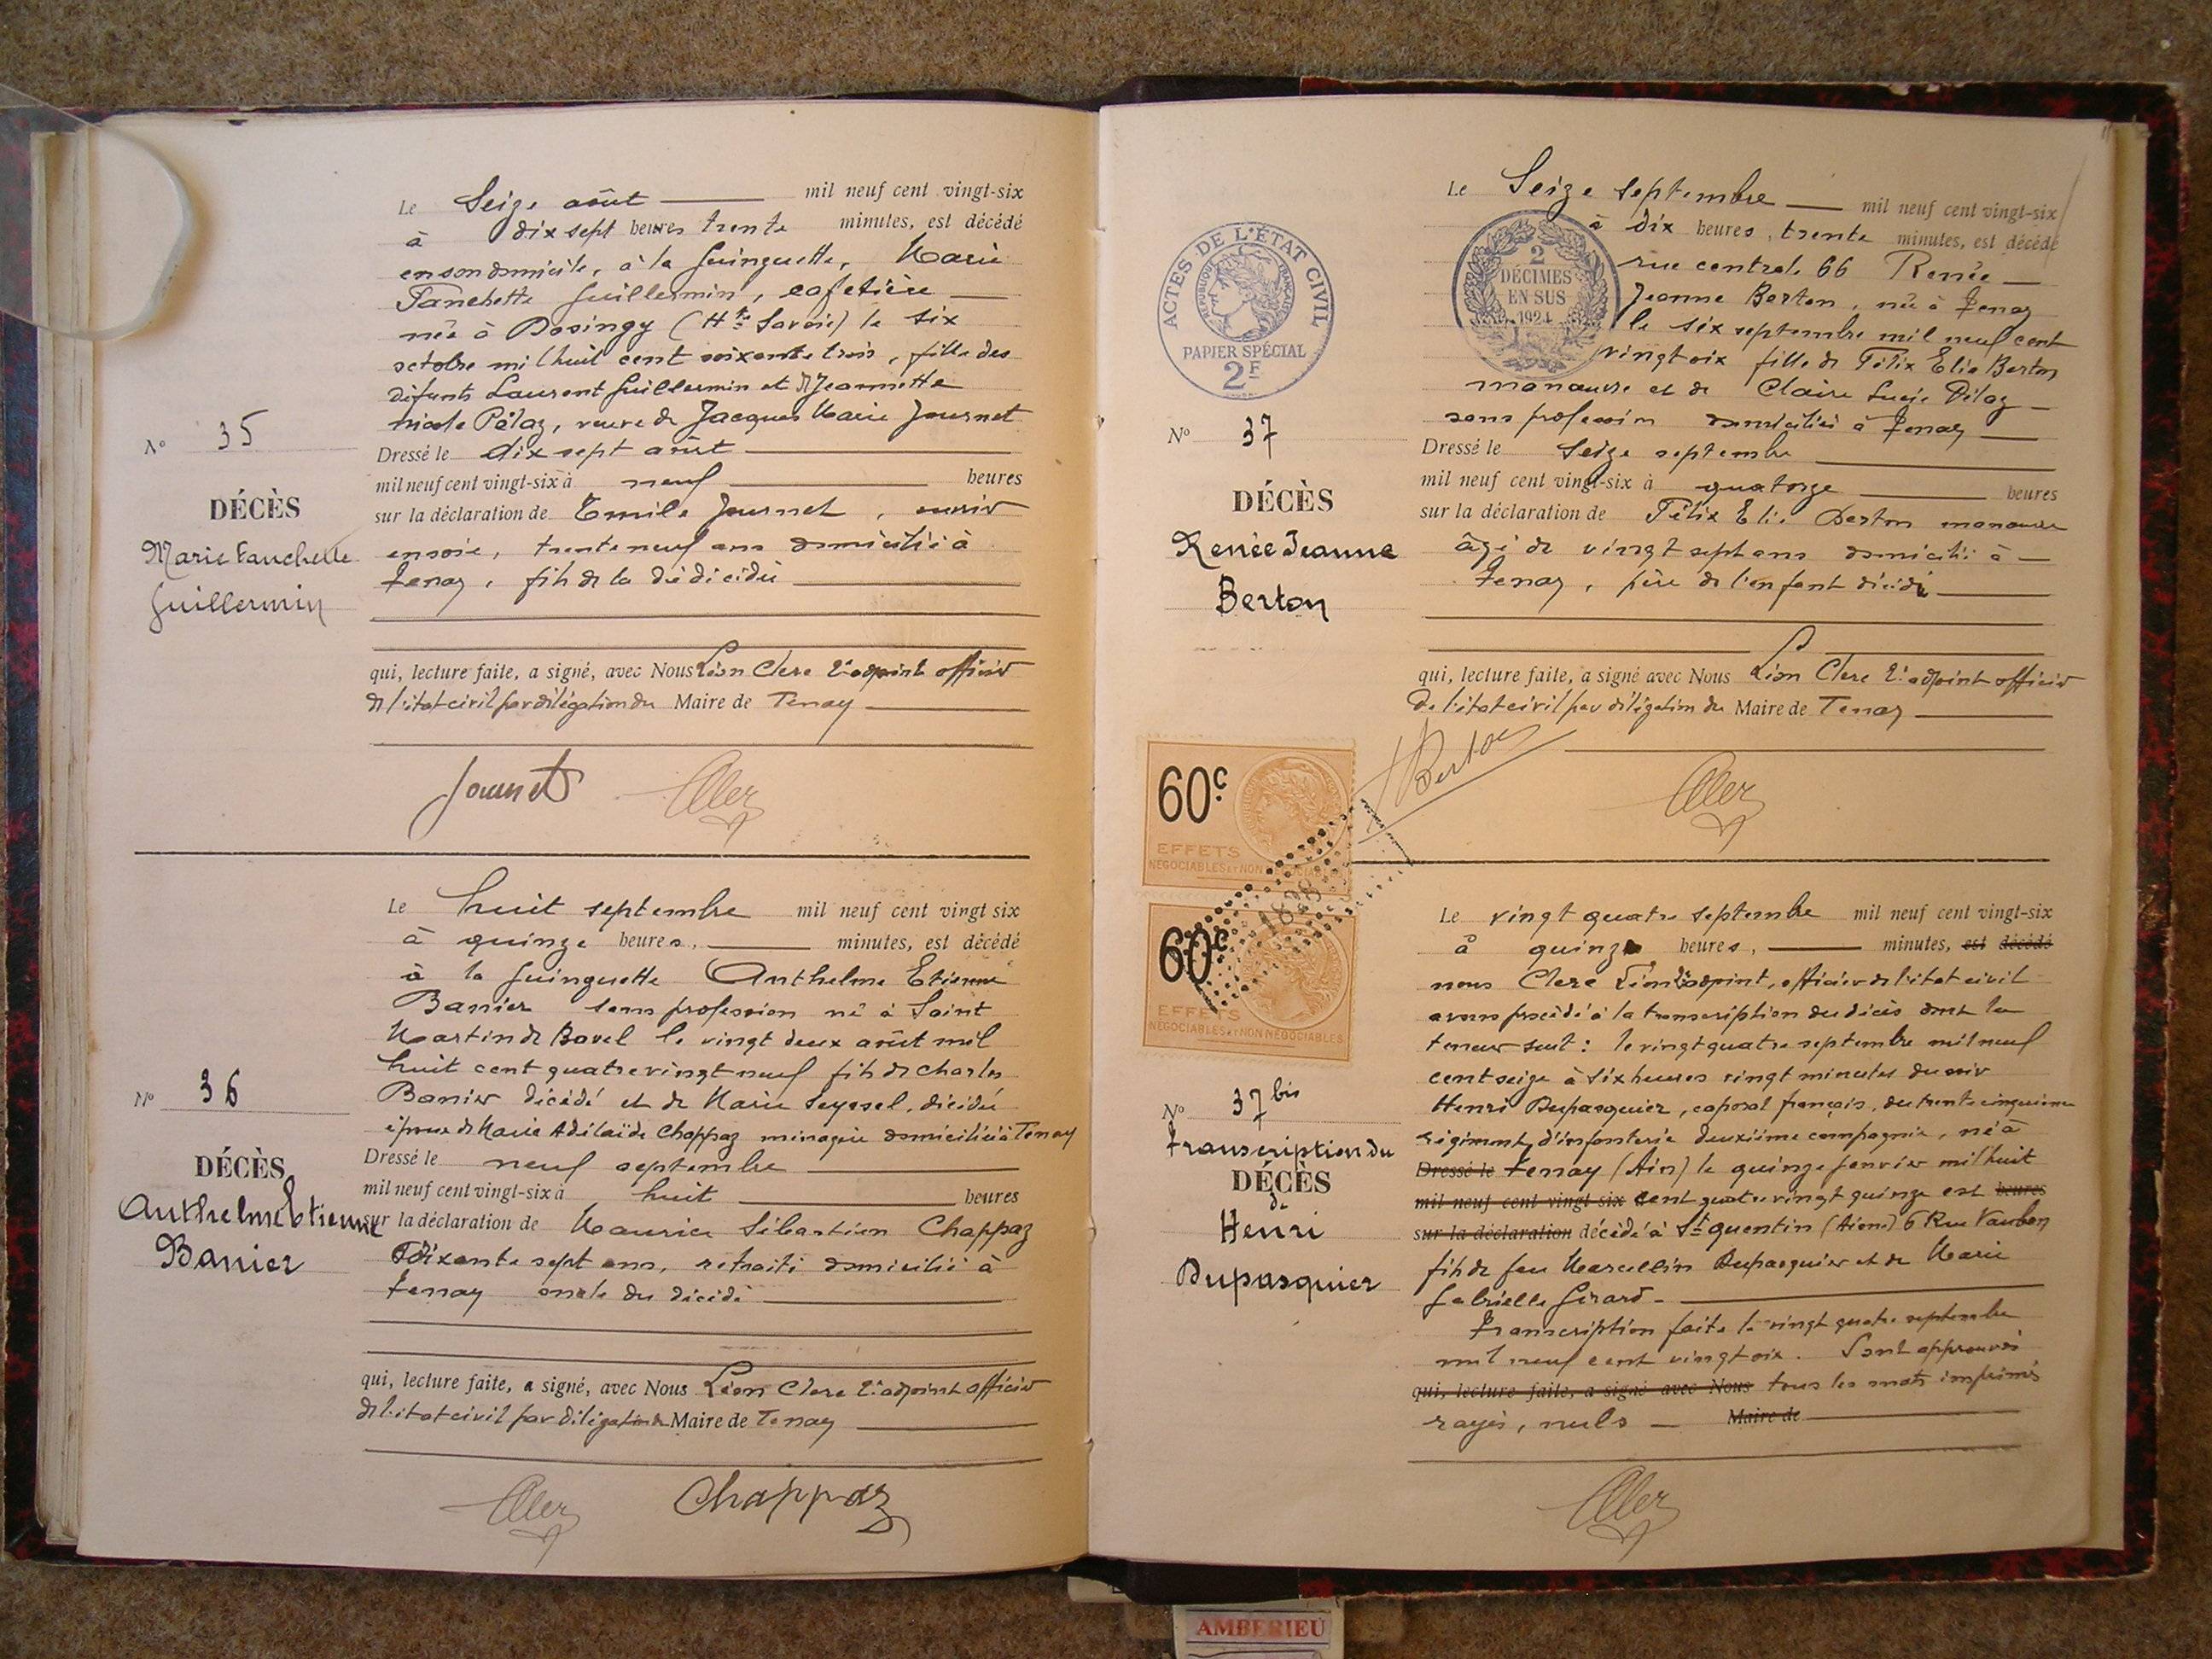 Le Seize août mil neuf cent vingt-six
à dix sept heures trente minutes, est décédé
en son domicile, à la Guinguette, Marie
Fanchette Guillermin, cafetière
née à Dosingy (Hte Savoie) le six
octobre mil huit cent soixante trois, fille des
défunts Laurent Guillermin et Jeannette
Pélaz, veuve de Jacques Marie Journet
No 35
DÉCÈS
Marie Fanchette
Guillermin
Dressé le dix sept août
mil neuf cent vingt-six à neuf heures
sur la déclaration de Emile Journet, ouvrier
en soie, trente neuf ans domicilié à
Tenay, fils de la dite décédée
qui, lecture faite, a signé, avec Nous Léon Clerc 2e adjoint officier
de l'état civil par délégation du Maire de Tenay
Journet
Clerc
Le huit septembre mil neuf cent vingt six
à quinze heures, minutes, est décédé
à la Guinguette Anthelme Etienne
Banier sans profession né à Saint
Martin de Bavel le vingt deux août mil
huit cent quatre vingt neuf fils de Charles
Banier décédé et de Marie Seyssel, décédée
époux de Marie Adélaïde Chappaz ménagère domiciliée à Tenay
No 36
DÉCÈS
Anthelme Etienne
Banier
Dressé le neuf septembre
mil neuf cent vingt-six à huit heures
sur la déclaration de Maurice Sébastien Chappaz
soixante sept ans, retraité domicilié à
Tenay oncle du décédé
qui, lecture faite, a signé, avec Nous Léon Clerc 2e adjoint officier
de l'état civil par délégation du Maire de Tenay
Clerc
Chappaz
ACTES DE L'ÉTAT CIVIL
RÉPUBLIQUE FRANÇAISE
PAPIER SPÉCIAL
2F
2
DÉCIMES
EN SUS
1924
Le Seize septembre mil neuf cent vingt-six
à dix heures, trente minutes, est décédé
rue centrale 66 Renée
Jeanne Berton, née à Tenay
le six septembre mil neuf cent
vingt six fille de Félix Elie Berton
manœuvre et de Claire Lucie Pélaz
sans profession domiciliés à Tenay
No 37
DÉCÈS
Renée Jeanne
Berton
Dressé le Seize septembre
mil neuf cent vingt-six à quatorze heures
sur la déclaration de Félix Elie Berton manœuvre
âgé de vingt sept ans domicilié à
Tenay, père de l'enfant décédé
qui, lecture faite, a signé avec Nous Léon Clerc 2e adjoint officier
de l'état civil par délégation du Maire de Tenay
Berton
Clerc
60c
EFFETS
NÉGOCIABLES ET NON NÉGOCIABLES
60c
EFFETS
NÉGOCIABLES ET NON NÉGOCIABLES
Le vingt quatre septembre mil neuf cent vingt-six
à quinze heures, minutes, est décédé
nous Clerc Léon 2e adjoint, officier de l'état civil
avons procédé à la transcription du décès dont la
teneur suit : le vingt quatre septembre mil neuf
cent seize à six heures vingt minutes du soir
Henri Dupasquier, caporal français, du trente cinquième
régiment d'infanterie deuxième compagnie, né à
No 37 bis
transcription du
DÉCÈS
de
Henri
Dupasquier
Dressé le Tenay (Ain) le quinze janvier mil huit
mil neuf cent vingt-six cent quatre vingt quinze est heures
sur la déclaration décédé à St Quentin (Aisne) 6 Rue Vauban
fils de feu Marcellin Dupasquier et de Marie
Gabrielle Girard.
Transcription faite le vingt quatre septembre
mil neuf cent vingt six. Sont approuvés
qui, lecture faite, a signé avec Nous tous les mots imprimés
rayés, nuls Maire de
Clerc
AMBERIEU